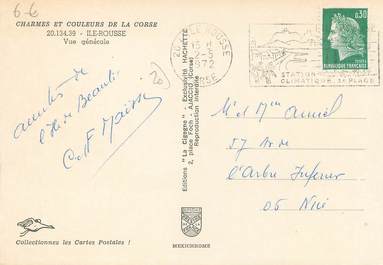 6-6
CHARMES ET COULEURS DE LA CORSE
20.134.39 - ILE-ROUSSE
Vue générale
amitiés de
l'Ile de Beauté
Editions "La Cigogne" - Exclusivité HACHETTE
2, place Foch - AJACCIO (Corse)
Reproduction Interdite
20 ILE-ROUSSE
1972
CORSE
STATION
CLIMATIQUE PLAGE
0,30
REPUBLIQUE FRANÇAISE
POSTES
M et Mme
57 Av de
l'Arbre Inférieur
06 Nice
Collectionnez les Cartes Postales !
MEXICHROME